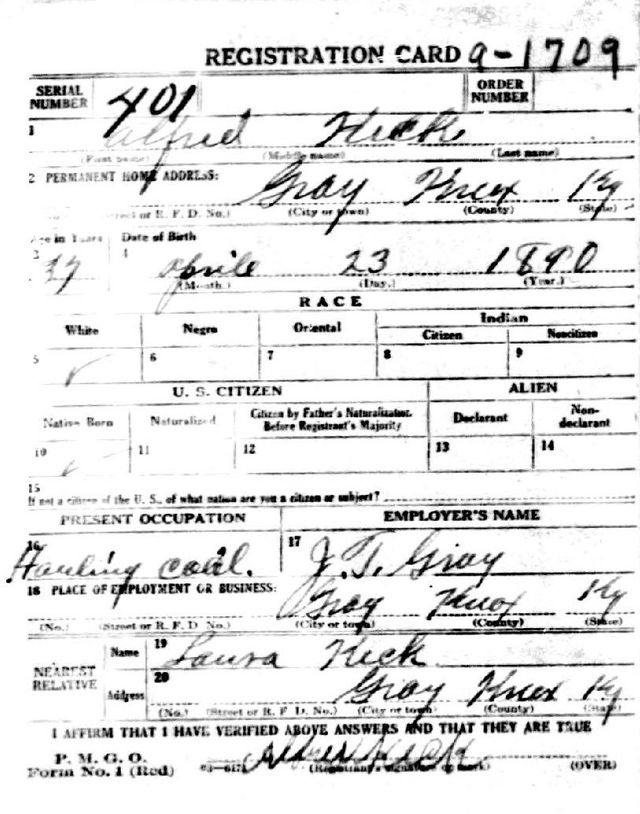 REGISTRATION CARD 9-1709
SERIAL NUMBER 401 ORDER NUMBER
1 Alfred Keck
(First name) (Middle name) (Last name)
2 PERMANENT HOME ADDRESS: Gray Knox Ky
(Street or R. F. D. No.) (City or town) (County) (State)
Age in Years Date of Birth
3 4
April 23 1890
(Month.) (Day.) (Year.)
RACE
White Negro Oriental Indian
Citizen Noncitizen
5 ✓ 6 7 8 9
U. S. CITIZEN ALIEN
Native Born Naturalized Citizen by Father's Naturalization Before Registrant's Majority Declarant Non-declarant
10 ✓ 11 12 13 14
15
If not a citizen of the U. S., of what nation are you a citizen or subject?
PRESENT OCCUPATION EMPLOYER'S NAME
16 Hauling coal. 17 J. T. Gray
18 PLACE OF EMPLOYMENT OR BUSINESS: Gray Knox Ky
(No.) (Street or R. F. D. No.) (City or town) (County) (State)
NEAREST RELATIVE Name 19 Laura Keck
Address 20 Gray Knox Ky
(No.) (Street or R. F. D. No.) (City or town) (County) (State)
I AFFIRM THAT I HAVE VERIFIED ABOVE ANSWERS AND THAT THEY ARE TRUE
P. M. G. O.
Form No. 1 (Red) Keck
(Registrant's signature or mark) (OVER)